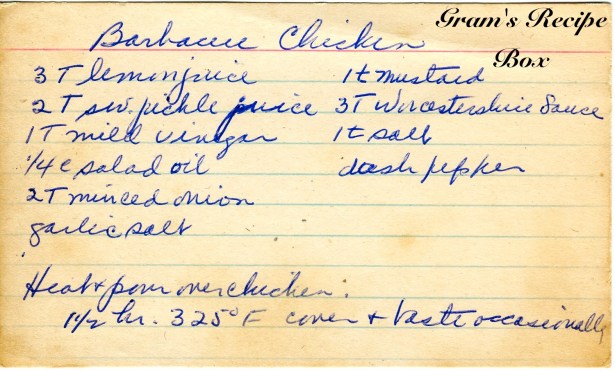 Gram's Recipe
Box
Barbacue Chicken
3 T lemon juice
2 T sw. pickle juice
1 T mild vinegar
1/4 c salad oil
2 T minced onion
garlic salt
1 t mustard
3 T Worcestershire Sauce
1 t salt
dash pepper
Heat & pour over chicken.
1 1/2 hr. 325° F cover & baste occasionally